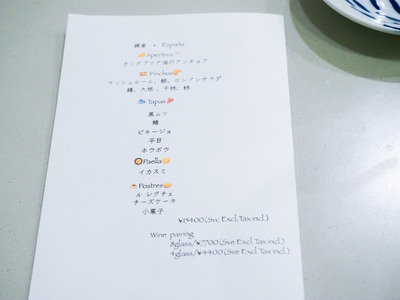 España
Aperitivo
カンタブリア海のアンチョア
Pinchos
マッシュルーム、鮑、ロシアンサラダ
鱚、大根、干柿、柿
Tapas
黒ムツ
鰆
ピキージョ
平目
ホウボウ
Paella
イカスミ
Postres
ル レクチェ
チーズケーキ
小菓子
¥15400(Svc Excl.Tax incl.)
Wine pairing
8glass/¥7700(Svc Excl.Tax incl.)
4glass/¥4400(Svc Excl.Tax incl.)